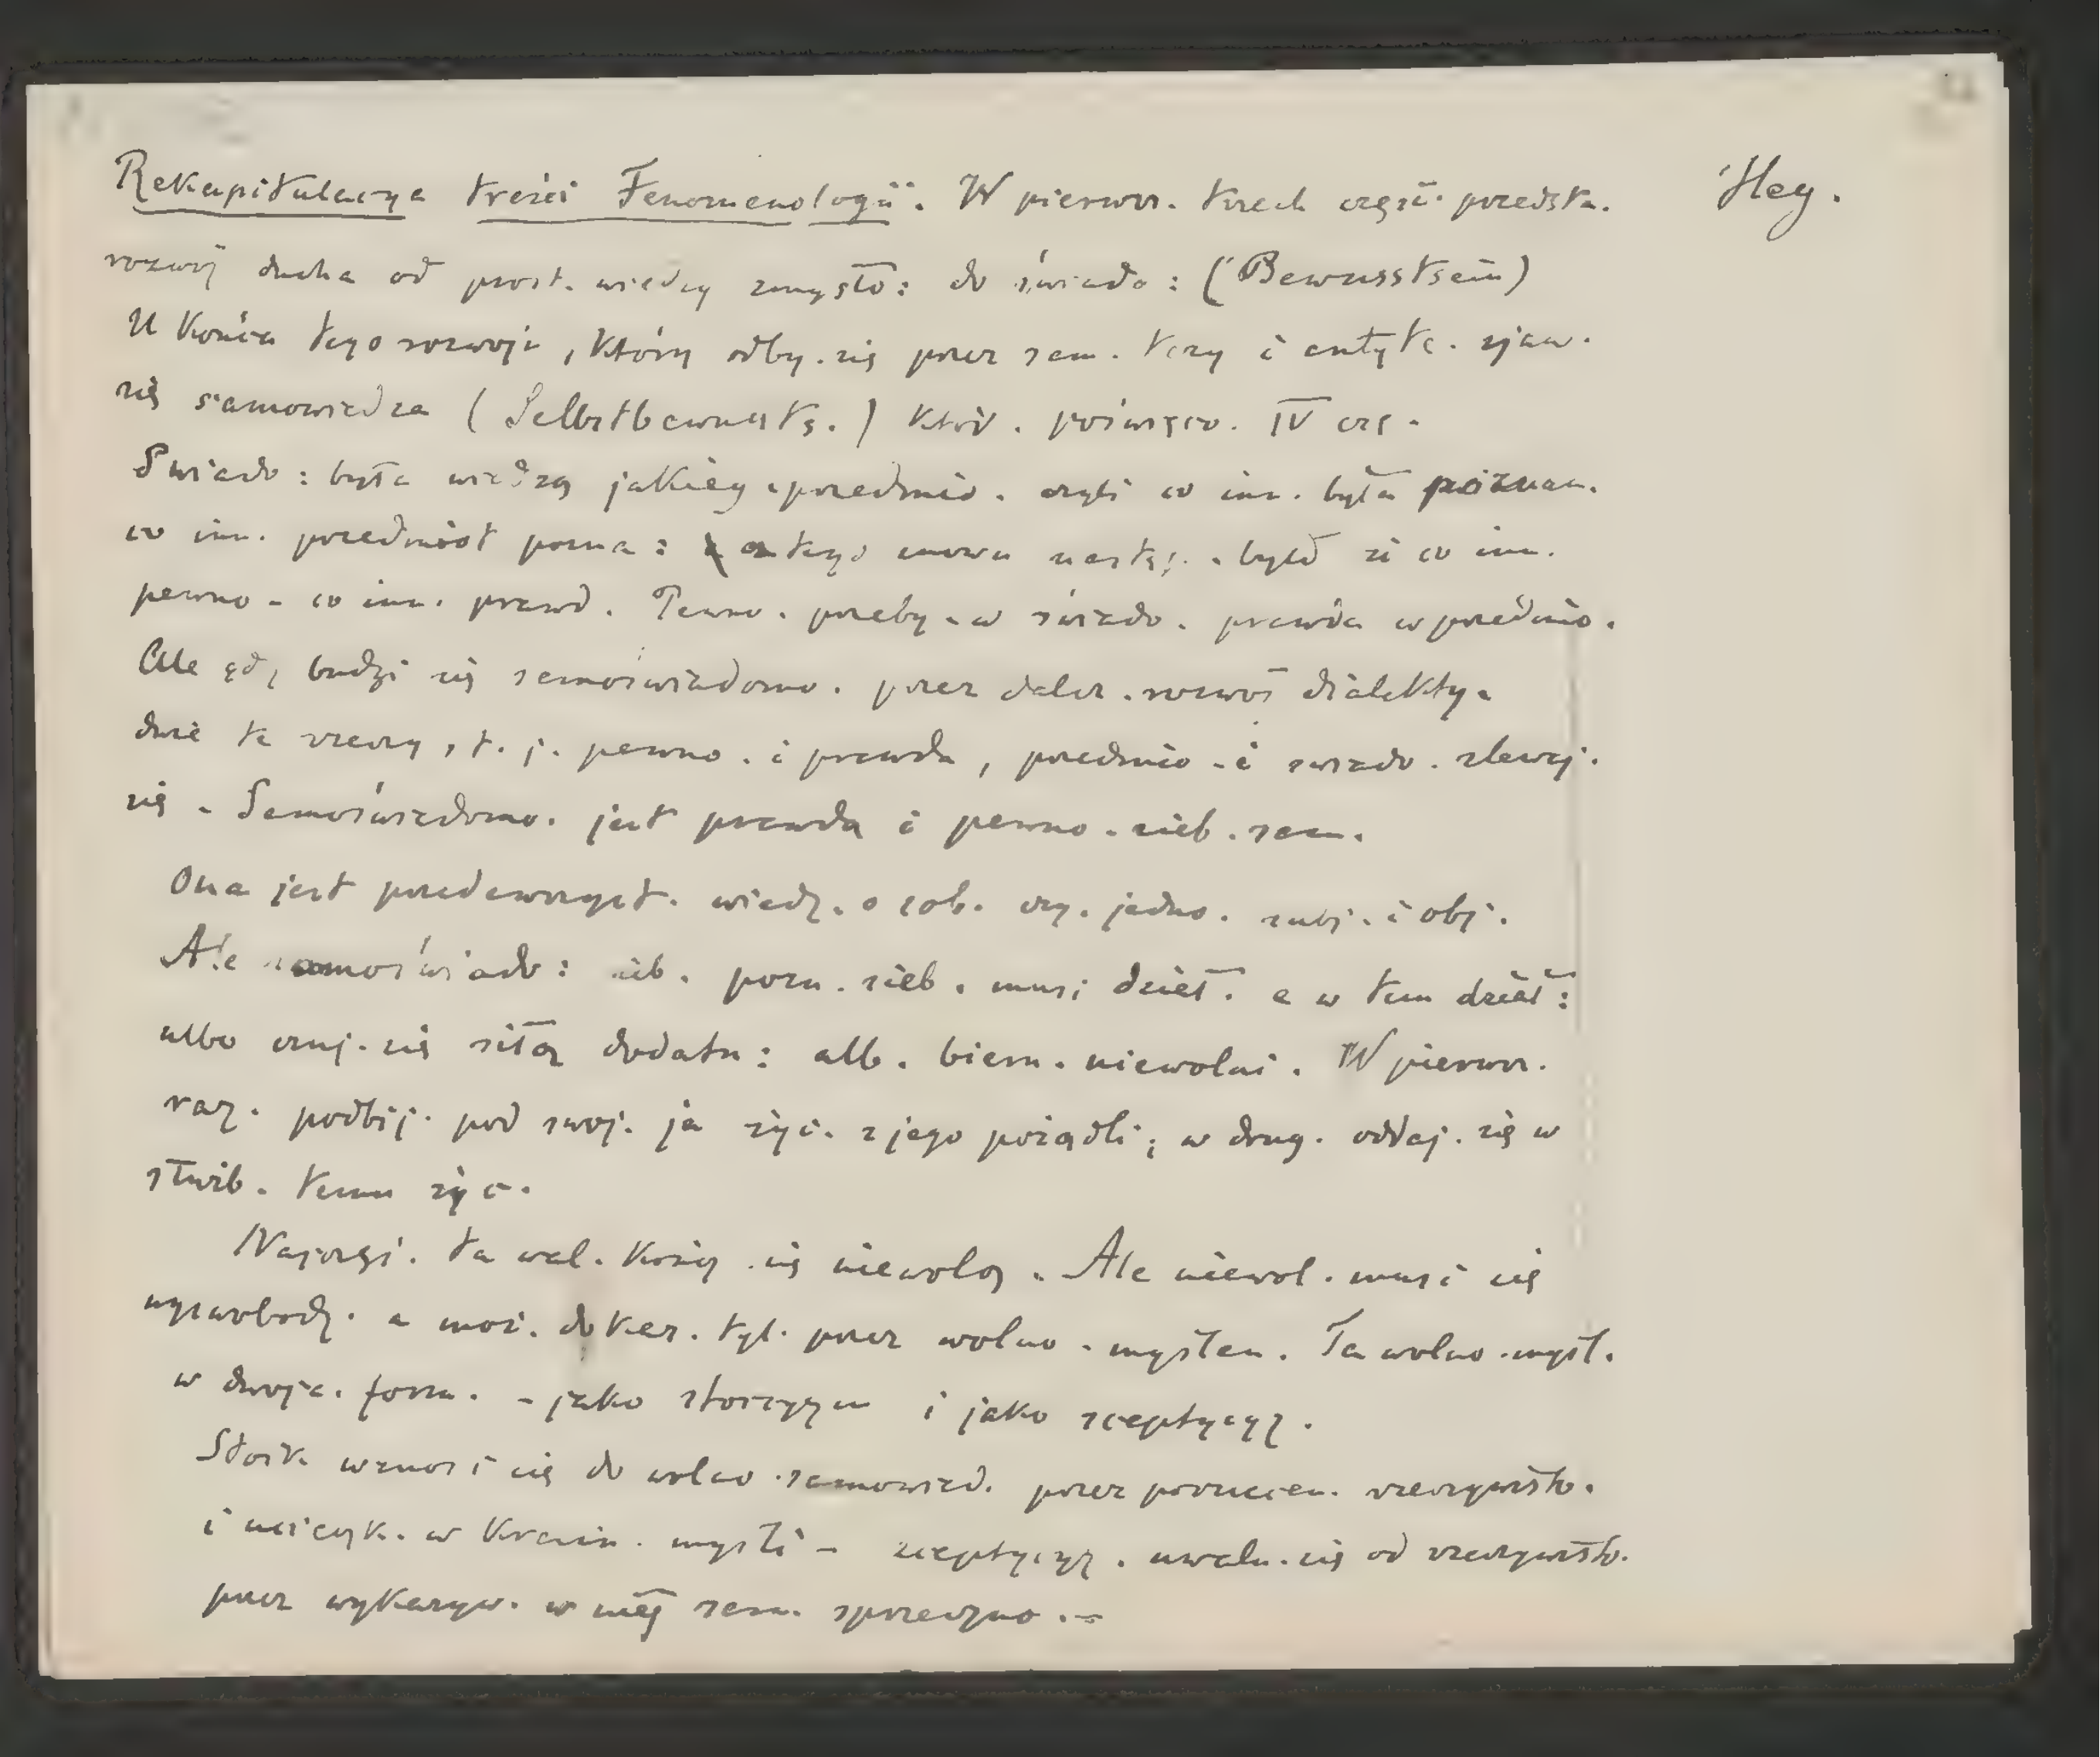 Rekapitulacya treści Fenomenologii. W pierwsz. trzech częśc. przedsta. Heg.
rozwój ducha od prost. wiedzy zmysło: do świado: (Bewusstsein)
U końca tego rozwoju, który odby. się przez sam. tezy i antyte. zjaw.
się samowiedza (Selbstbewussts.) któr. poświęco. IV czę.
Świado: była wiedzą jakiegoś przedmio. czyli co inn. była poznan.
co inn. przedmiot pozna: z tego znowu nastę. było że co inn.
pewno - co inn. prawd. Pewno. przeby. w świado. prawda w przedmio.
Ale gdy budzi się samoświadomo. przez dalsz. rozwój dialekty.
dwie te rzeczy, t. j. pewno. i prawda, przedmio. i swiado. zlewaj.
się. Samoświadomo. jest prawdą i pewno. sieb. sam.
Ona jest przedewszyst. wiedz. o sob. czy. jedno. subj. i obj.
Ale samoświado: żeb. pozn. sieb. musi dział. a w tem dział:
albo czuj. się siłą dodatn: alb. biern. niewolni. W pierwsz.
raz. podbij. pod swoj. ja życ. z jego pożądli; w drug. oddaj. się w
służb. temu życ.
Najczęś. ta wal. kończ się niewolą. Ale niewol. musi się
wyswobodz. a moż. dokaz. tyl. przez wolno. myślen. Ta wolno. myśl.
w dwoja. form. - jako stoicyzm i jako sceptycyz.
Stoik wznosi się do wolno. samowied. przez porzucen. rzeczywisto.
i ucieczk. w krain. myśli - sceptycyz. uwaln. się od rzeczywisto.
przez wykazyw. w niej sam. sprzeczno. -